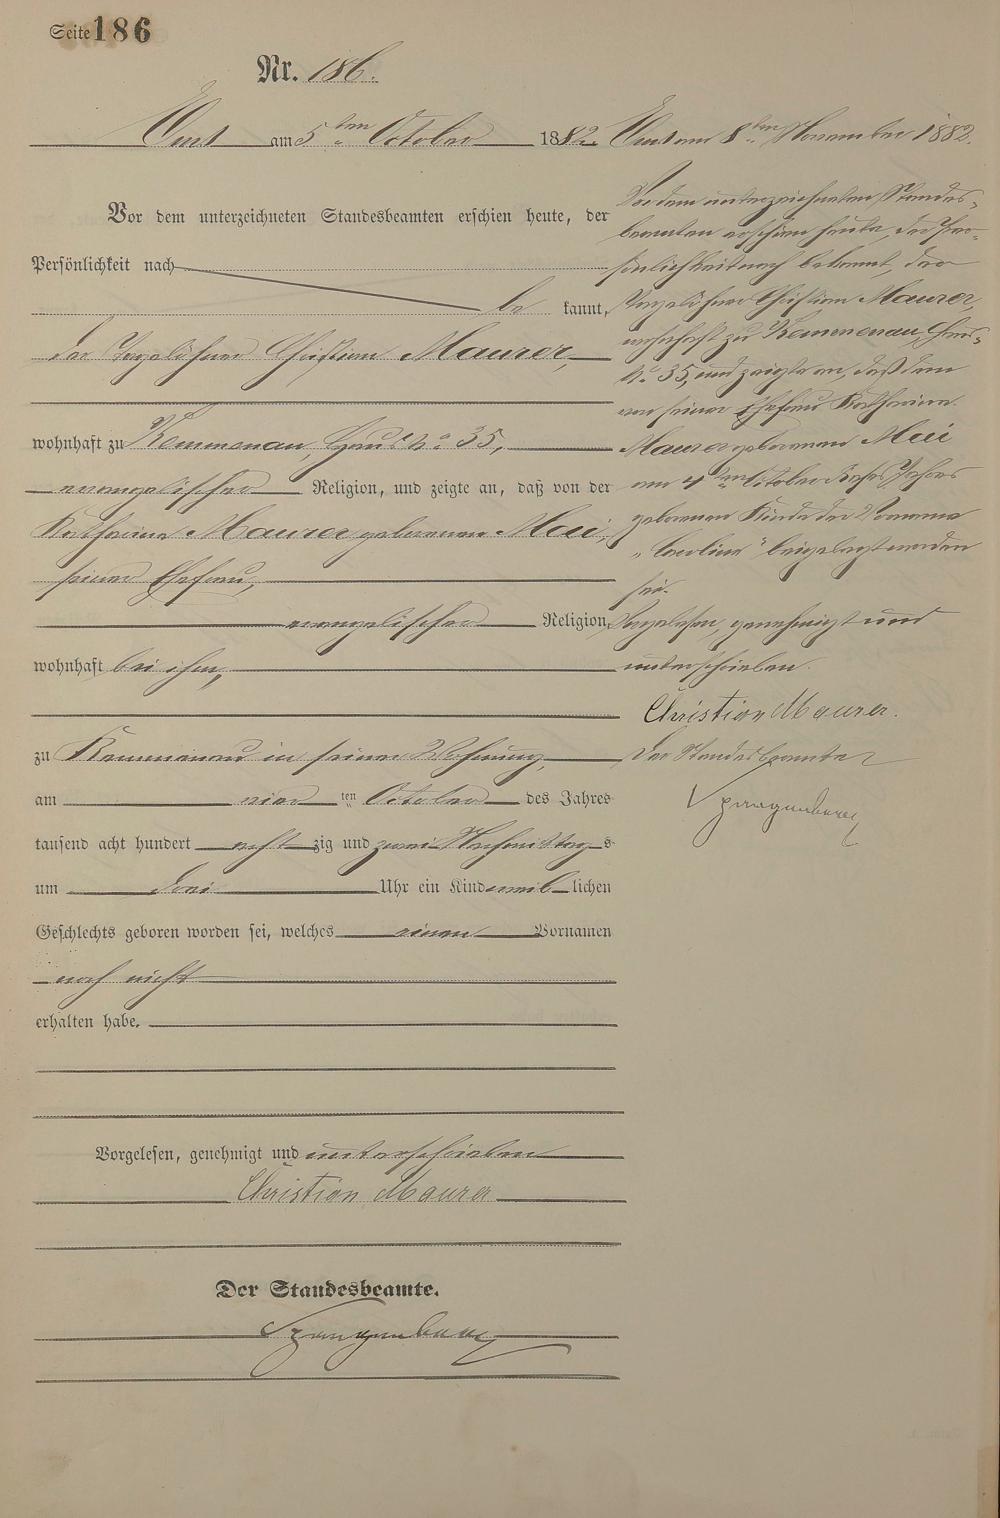 Seite 186
Nr. 186.
Ems am 5ten October 1882.
Vor dem unterzeichneten Standesbeamten erschien heute, der
Persönlichkeit nach
be kannt,
der Tagelöhner Christian Maurer,
wohnhaft zu Kemmenau, Haus No 35,
evangelischer Religion, und zeigte an, daß von der
Katharina Maurer geborenen Mai,
seiner Ehefrau,
evangelischer Religion,
wohnhaft bei ihm,
zu Kemmenau in seiner Wohnung,
am vier ten October des Jahres
tausend acht hundert acht zig und zwei Nachmittag s
um drei Uhr ein Kind weib lichen
Geschlechts geboren worden sei, welches einen Vornamen
noch nicht
erhalten habe.
Vorgelesen, genehmigt und unterschrieben
Christian Maurer
Der Standesbeamte.
Spangenberg
Ems am 8ten November 1882.
Vor dem unterzeichneten Standes-
beamten erschien heute, der Per-
sönlichkeit nach bekannt, der
Tagelöhner Christian Maurer,
wohnhaft zu Kemmenau, Haus-
No 35, und zeigte an, daß dem
von seiner Ehefrau Katharina
Maurer geborenen Mai
am 4ten October dieses Jahres
geborenen Kinde der Vorname
"Carolina" beigelegt worden
sei.
Vorgelesen, genehmigt und
unterschrieben.
Christian Maurer.
Der Standesbeamte
Spangenberg